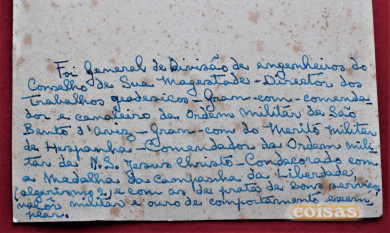 Foi General de Divisão de engenheiros do
Conselho de Sua Magestade - Director dos
trabalhos geodesicos - Gram - com - comenda-
dor e cavaleiro da Ordem Militar de São
Bento d'Aviz - Gram - com do Merito Militar
de Hespanha - Comendador da Ordem mili-
tar de N. S. Jesus Christo - Condecorado com
a Medalha da Campanha da Liberdade,
(algarismo 2) e com as de prata de bons serviços,
valor militar e ouro de comportamento exem-
plar.
coisas